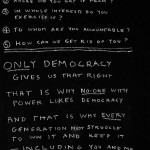 ② WHERE DID YOU GET IT FROM?
③ IN WHOSE INTERESTS DO YOU
EXERCISE IT?
④ TO WHOM ARE YOU ACCOUNTABLE?
⑤ HOW CAN WE GET RID OF YOU?
ONLY DEMOCRACY
GIVES US THAT RIGHT
THAT IS WHY NO-ONE WITH
POWER LIKES DEMOCRACY
AND THAT IS WHY EVERY
GENERATION MUST STRUGGLE
TO WIN IT AND KEEP IT
INCLUDING YOU AND ME